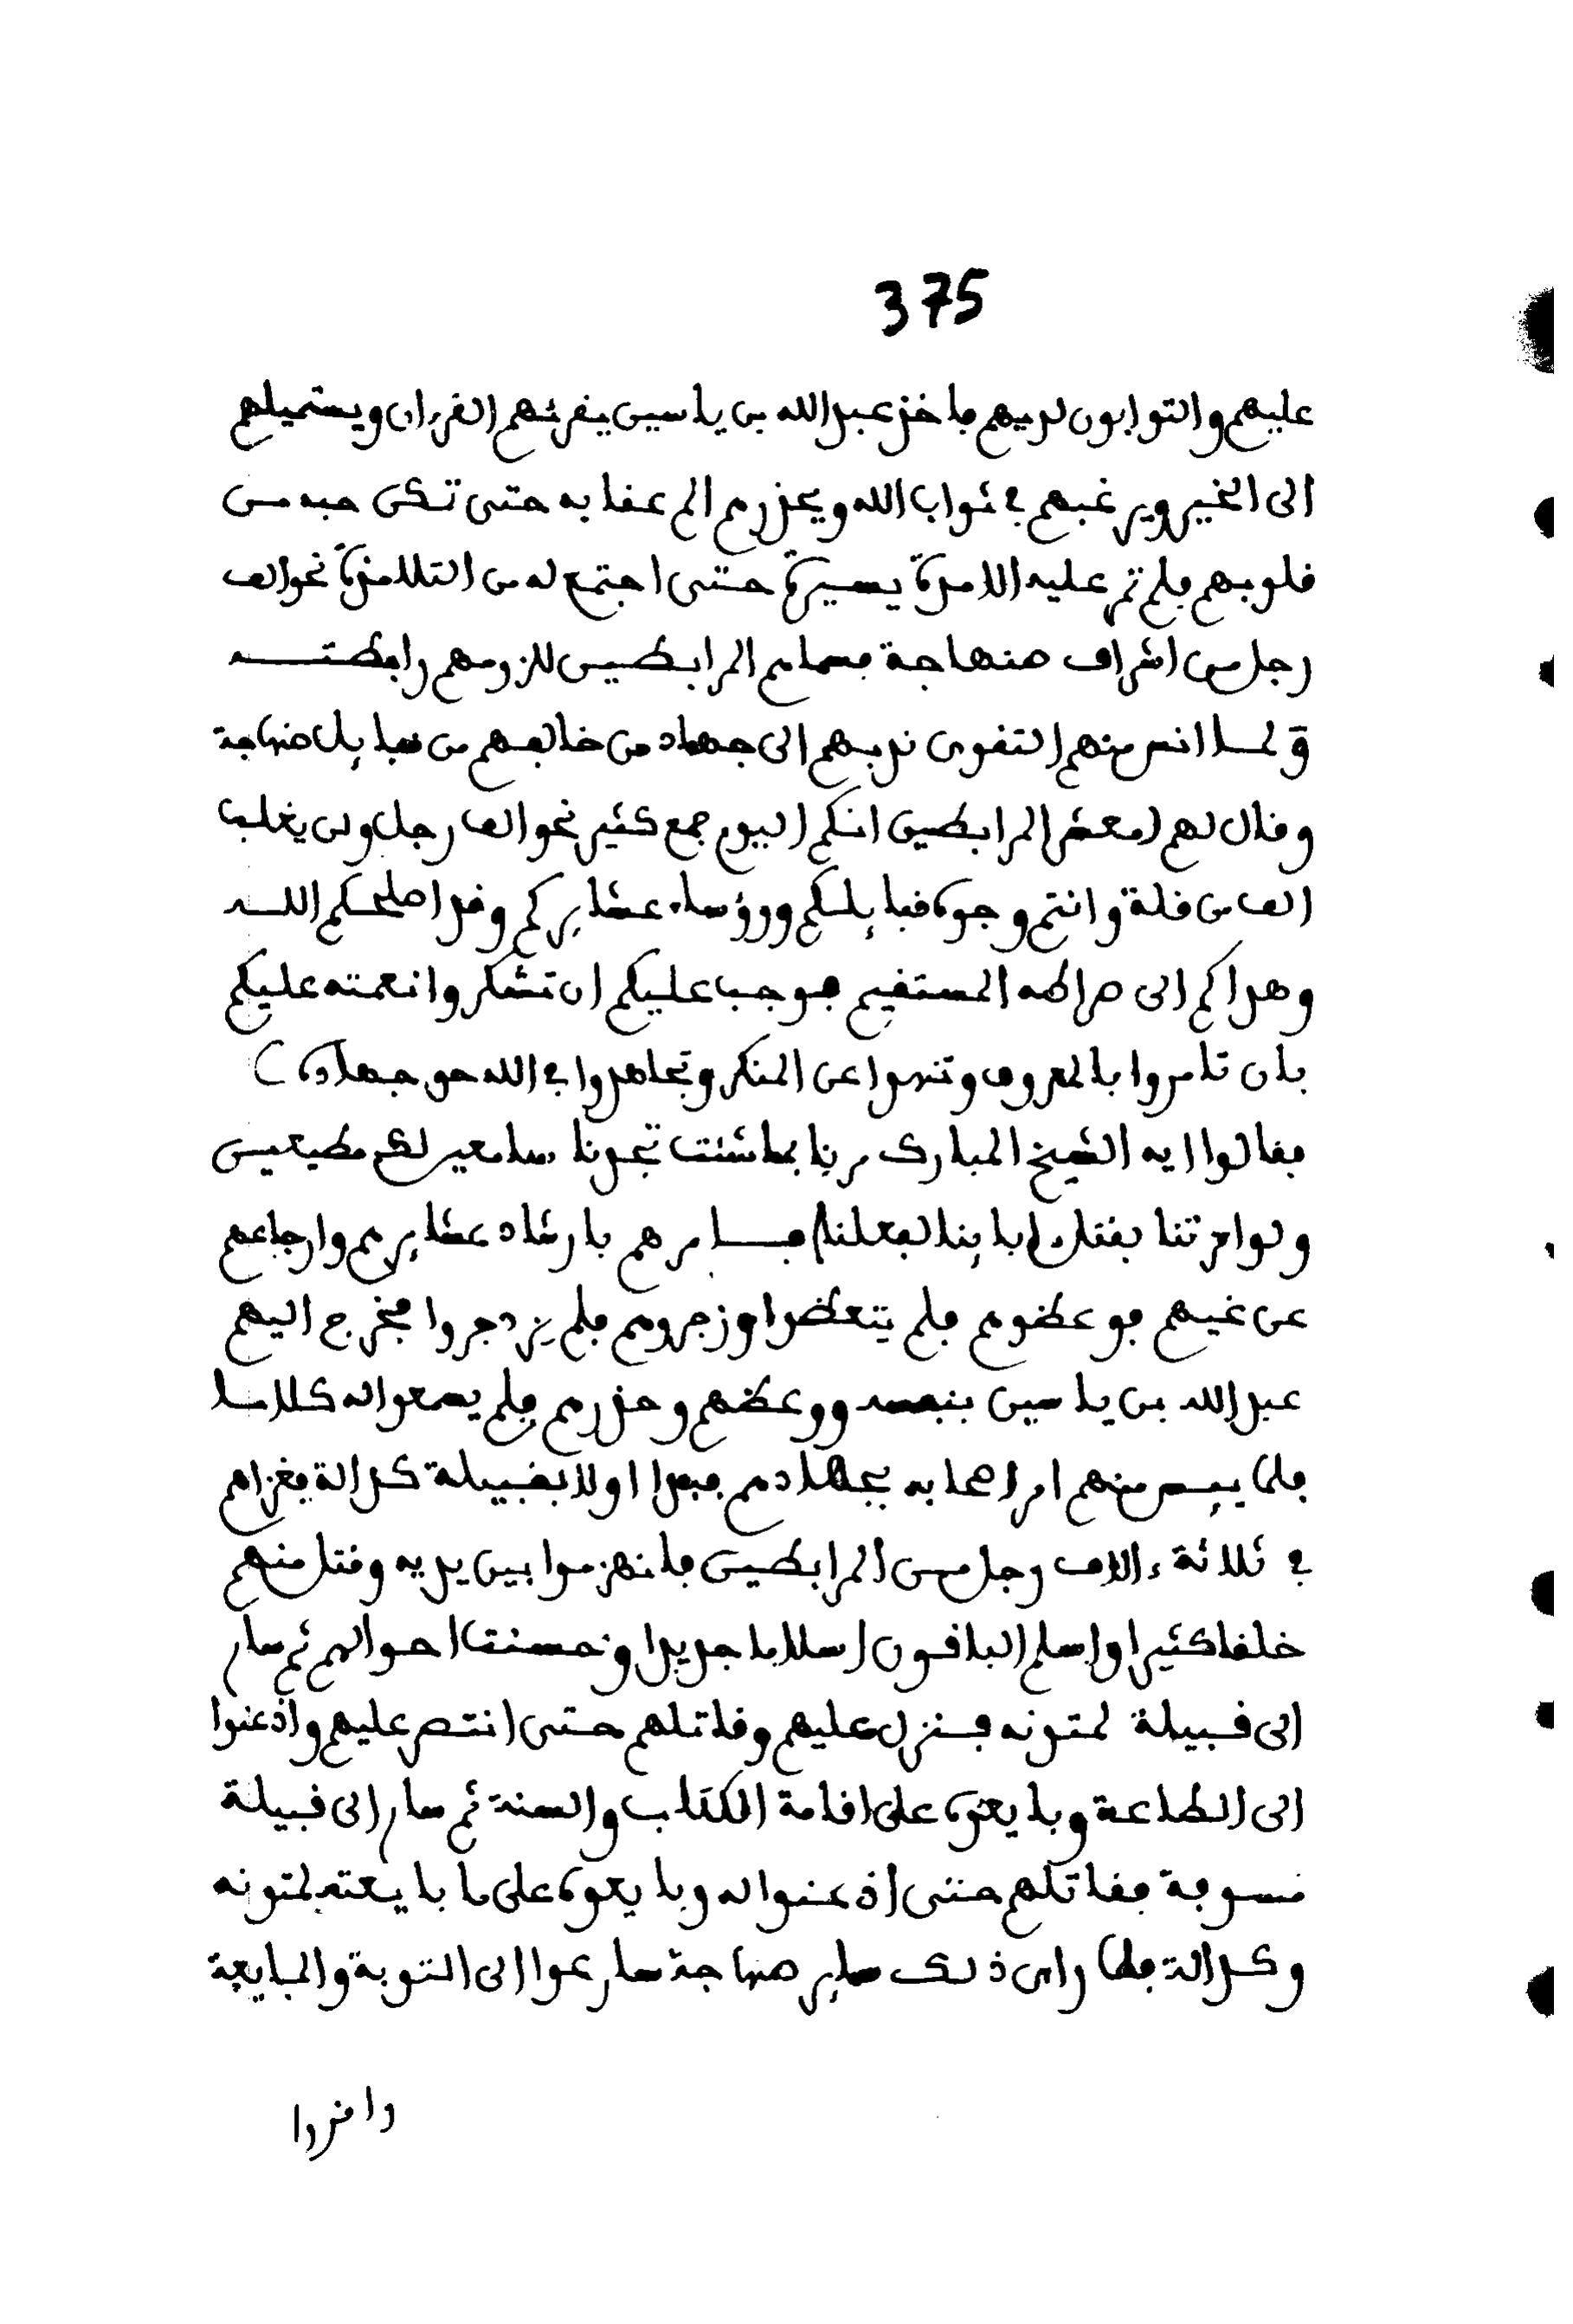 375
عليهم والتوابون لديهم فاخذ عبد الله بن ياسين يقرئهم القرءان ويستميلهم
الى الخير ويرغبهم في ثواب الله ويحذرهم الم عقابه حتى تمكن حبه من
قلوبهم فلم تمر عليه الا مدة يسيرة حتى اجتمع له من التلامذة نحو الف
رجل من اشراف صنهاجة فسماهم المرابطين للزومهم رابطته
ولما انس منهم التقوى ندبهم الى جهاد من خالفهم من قبايل صنهاجة
وقال لهم (معشر المرابطين انكم اليوم جمع كثير نحو الف رجل ولن يغلب
الف من قلة وانتم وجوه قبايلكم ورؤساء عشايركم وقد اصلحكم الله
وهداكم الى صراطه المستقيم فوجب عليكم ان تشكروا نعمته عليكم
بان تامروا بالمعروف وتنهوا عن المنكر وتجاهدوا في الله حق جهاده)
فقالوا ايه الشيخ المبارك مرنا بما شئت تجدنا سامعين لك مطيعين
ولو امرتنا بقتل ابابنا لفعلنا فامرهم بارشاد عشايرهم وارجاعهم
عن غيهم فوعظوهم فلم يتعظوا وزجروهم فلم يزدجروا فخرج اليهم
عبد الله بن ياسين بنفسه ووعظهم وحذرهم فلم يسمعوا له كلاما
فلما ييس منهم امر اصحابه بجهادهم فبدا اولا بقبيلة كدالة فغزاهم
في ثلاثة ءالاف رجل من المرابطين فانهزموا بين يديه وقتل منهم
خلقا كثيرا واسلم الباقون اسلاما جديدا وحسنت احوالهم ثم سار
الى قبيلة لمتونه فنزل عليهم وقاتلهم حتى انتصر عليهم واذعنوا
الى الطاعة وبايعوه على اقامة الكتاب والسنة ثم سار الى قبيلة
مسوفة فقاتلهم حتى اذعنوا له وبايعوه على ما بايعته لمتونه
وكدالة فلما راى ذلك ساير صنهاجة سارعوا الى التوبة والمبايعة
واقروا